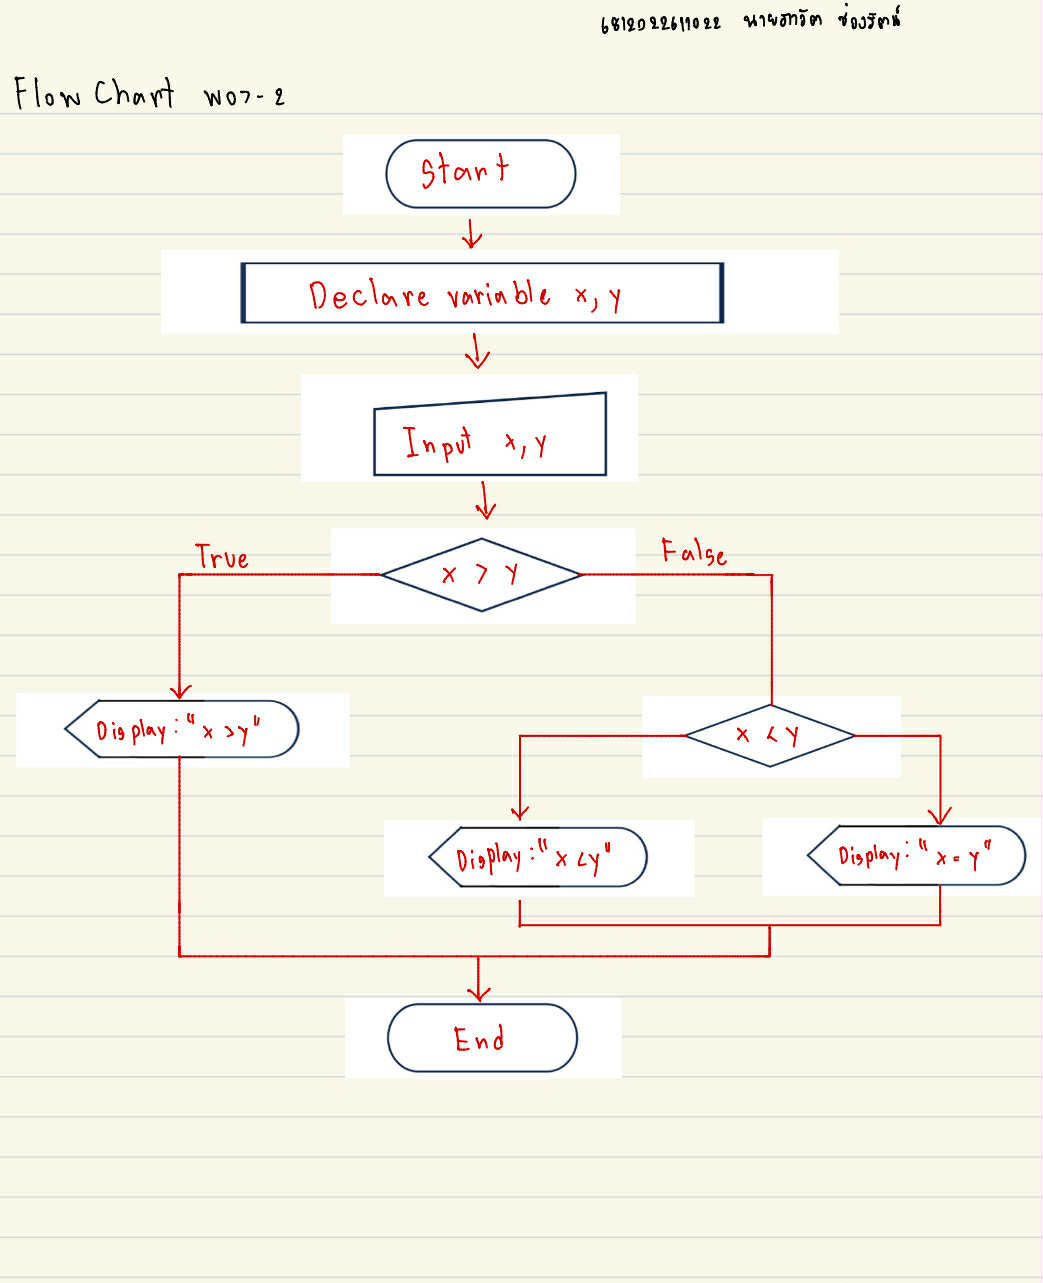 6812022611022 นาย
Flow Chart W07-2
Start
Declare variable x, y
Input x, y
True
x > y
False
Display: "x > y"
x < y
Display: "x < y"
Display: "x = y"
End